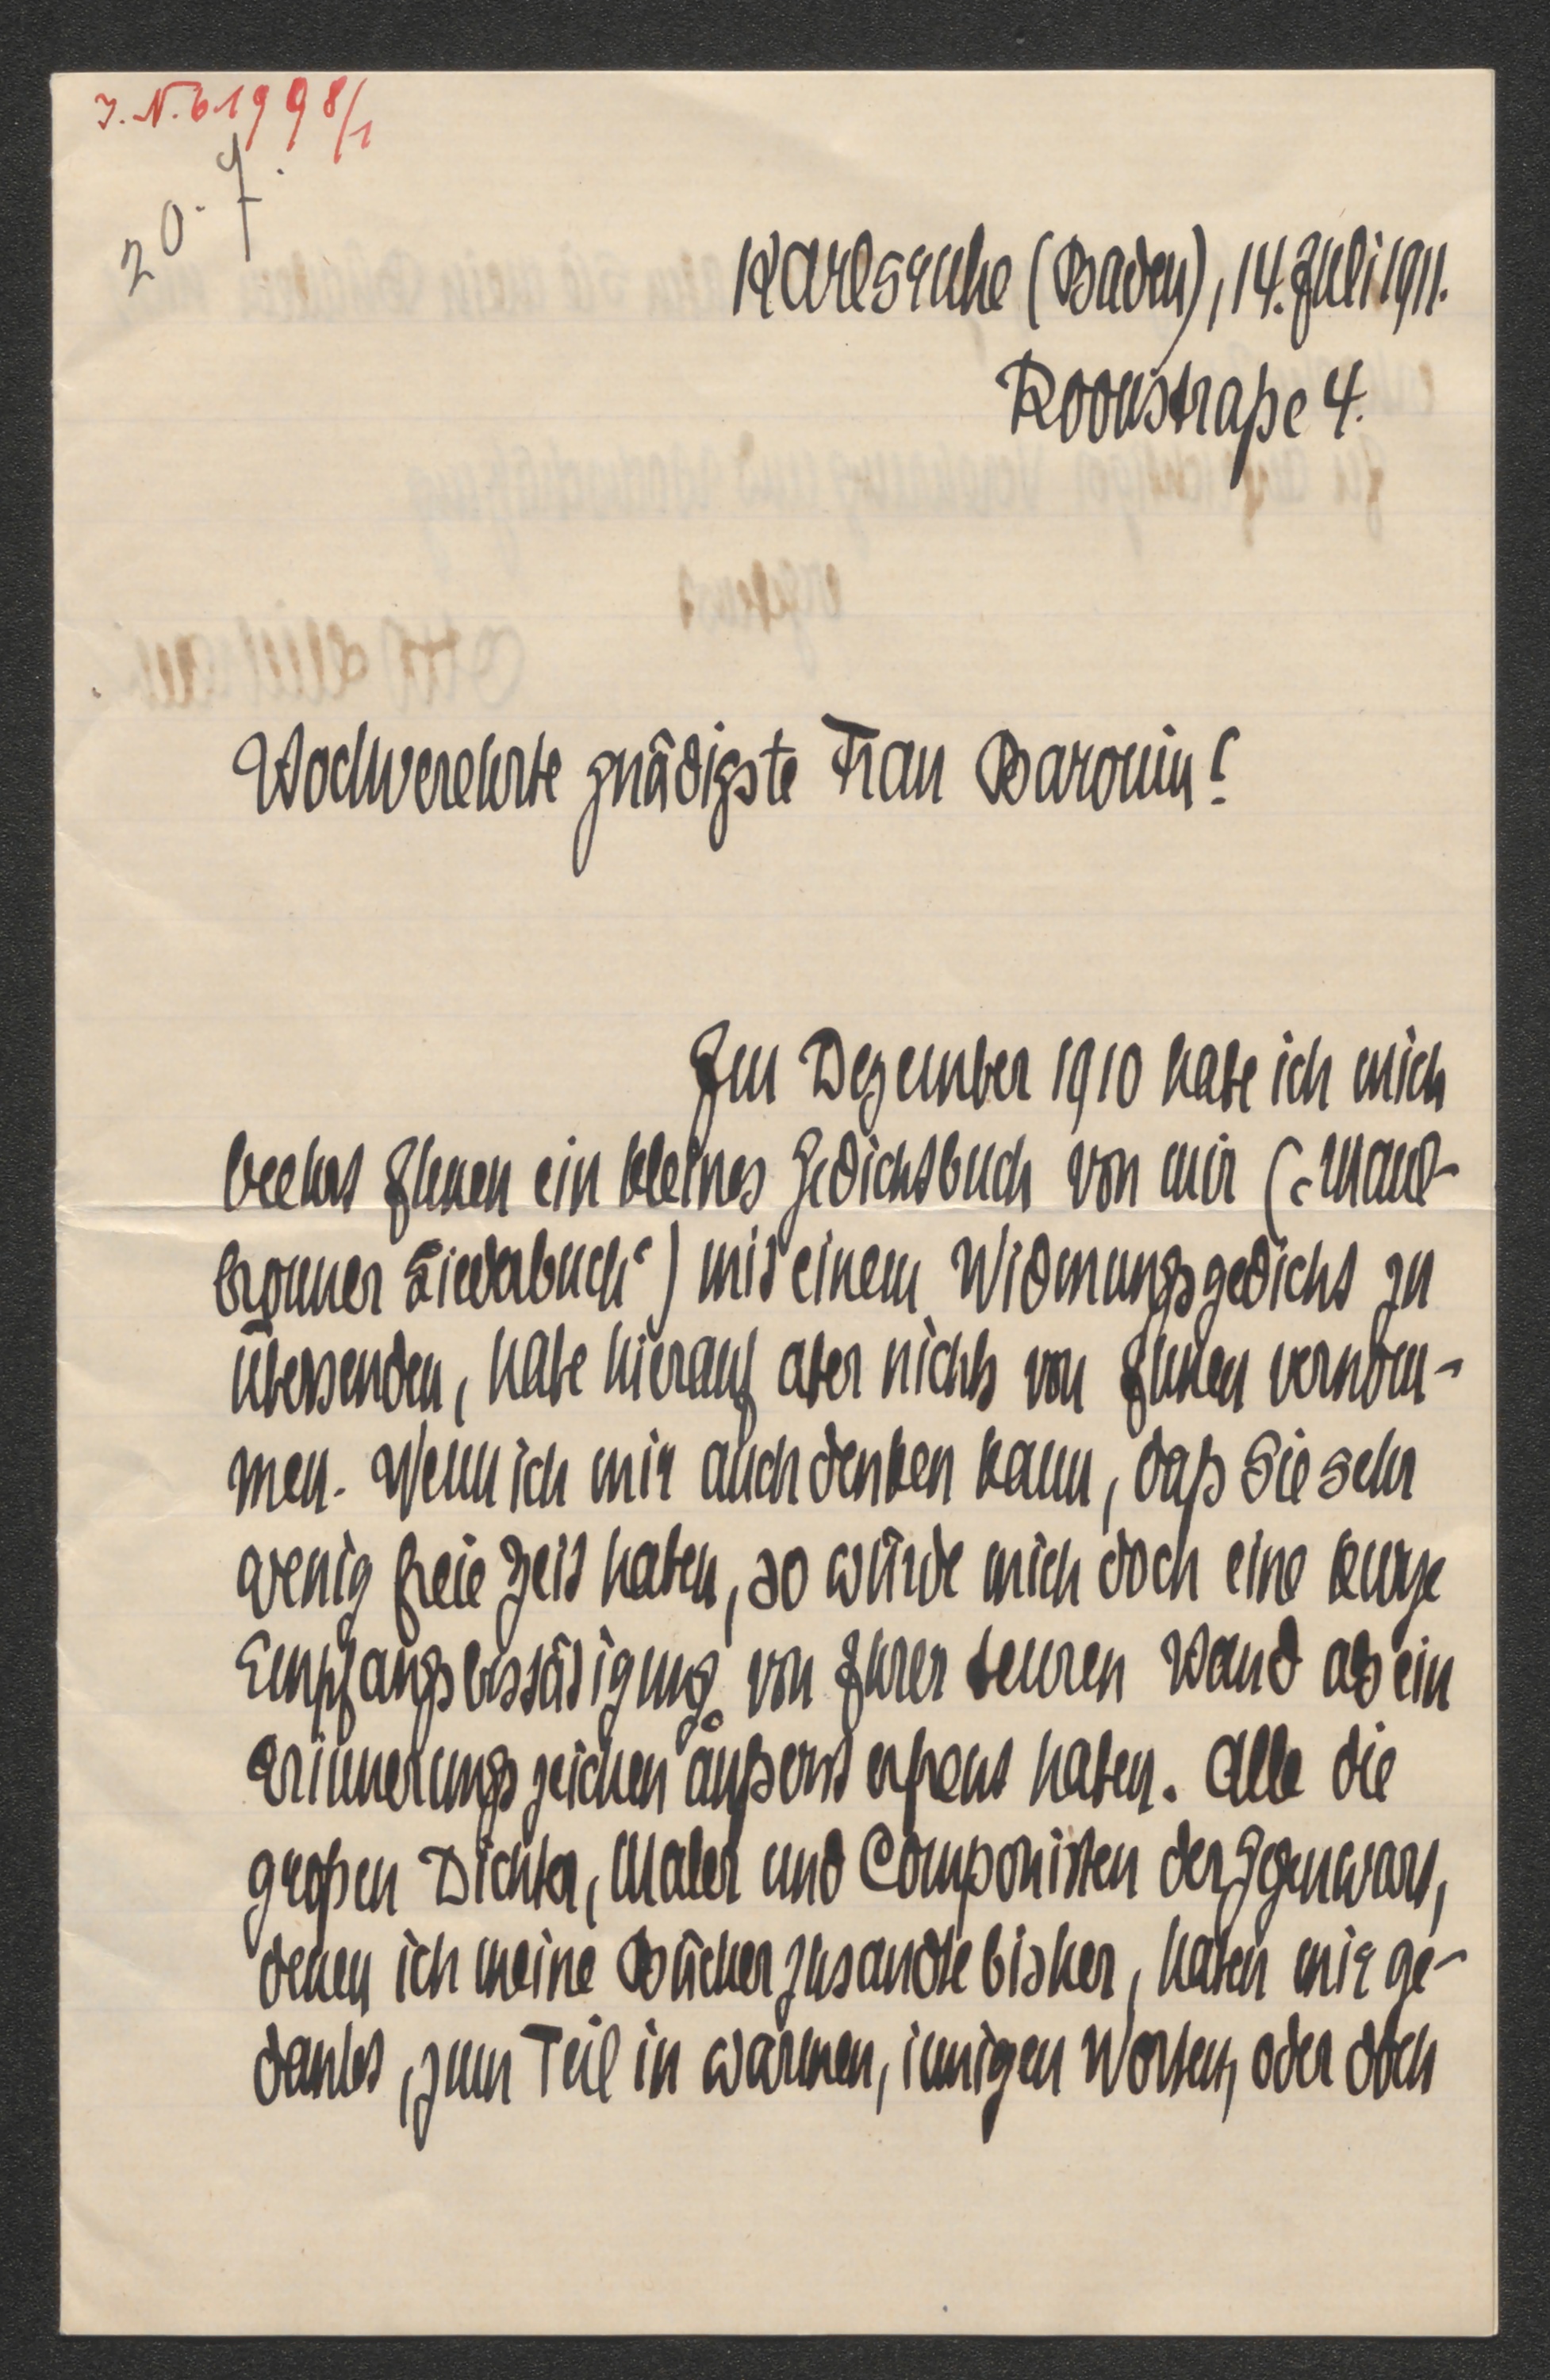 J. N. 61998/1
20. 7.
Karlsruhe (Baden), 14. Juli 1911.
Roonstraße 4.
Hochverehrte gnädigste Frau Baronin!
Im Dezember 1910 habe ich mich
beehrt Ihnen ein kleines Gedichtbuch von mir („Maul-
bronner Liederbuch“) mit einem Widmungsgedicht zu
übersenden, habe hierauf aber nichts von Ihnen vernom-
men. Wenn ich mir auch denken kann, daß Sie sehr
wenig freie Zeit haben, so würde mich doch eine kurze
Empfangsbestätigung von Ihrer teuren Hand als ein
Erinnerungszeichen äußerst erfreut haben. Alle die
großen Dichter, Maler und Componisten der Gegenwart,
denen ich meine Bücher zusandte bisher, haben mir ge-
dankt, zum Teil in warmen, innigen Worten, oder doch